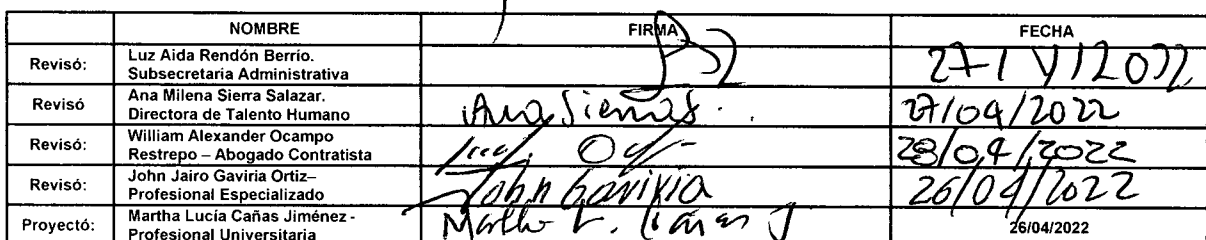 NOMBRE FIRMA FECHA
Revisó: Luz Aida Rendón Berrío.
Subsecretaria Administrativa 27/IV/2022
Revisó Ana Milena Sierra Salazar.
Directora de Talento Humano Ana Sierra S. 27/04/2022
Revisó: William Alexander Ocampo
Restrepo – Abogado Contratista 28/04/2022
Revisó: John Jairo Gaviria Ortiz–
Profesional Especializado John Gaviria 26/04/2022
Proyectó: Martha Lucía Cañas Jiménez -
Profesional Universitaria Martha L. Cañas J 26/04/2022